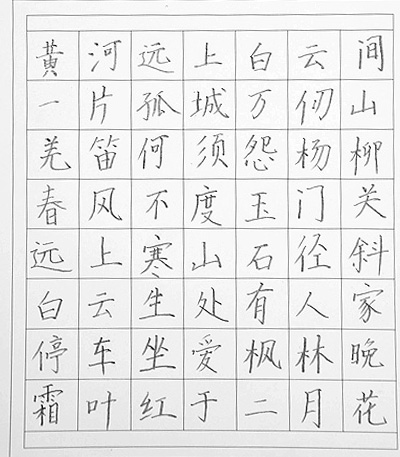 黄河远上白云间
一片孤城万仞山
羌笛何须怨杨柳
春风不度玉门关
远上寒山石径斜
白云生处有人家
停车坐爱枫林晚
霜叶红于二月花